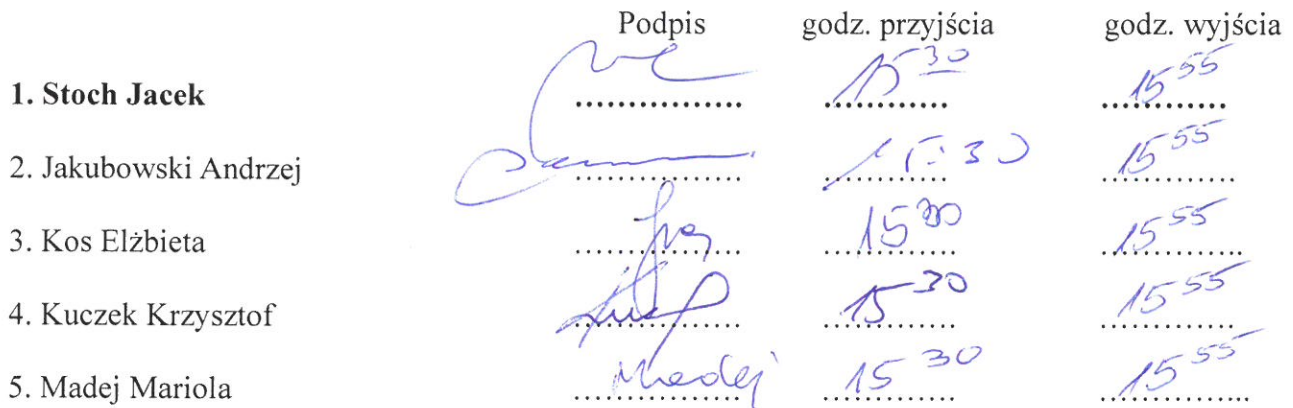 Podpis godz. przyjścia godz. wyjścia
1. Stoch Jacek .............. 15 30 15 55
2. Jakubowski Andrzej .............. 15:30 15 55
3. Kos Elżbieta .............. 15 30 15 55
4. Kuczek Krzysztof .............. 15 30 15 55
5. Madej Mariola Madej 15 30 15 55